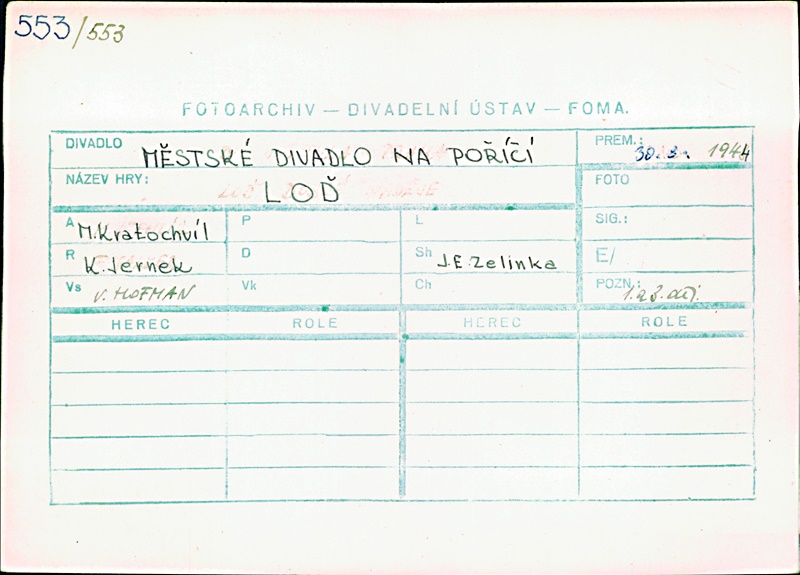 553/553
FOTOARCHIV — DIVADELNÍ ÚSTAV — FOMA.
DIVADLO MĚSTSKÉ DIVADLO NA POŘÍČÍ PREM.: 30. 3. 1944
NÁZEV HRY: LOĎ FOTO
A M. Kratochvíl P L SIG.:
R K. Jernek D Sh J. E. Zelinka E/
Vs V. HOFMAN Vk Ch POZN.: 1. a 3. děj.
HEREC ROLE HEREC ROLE